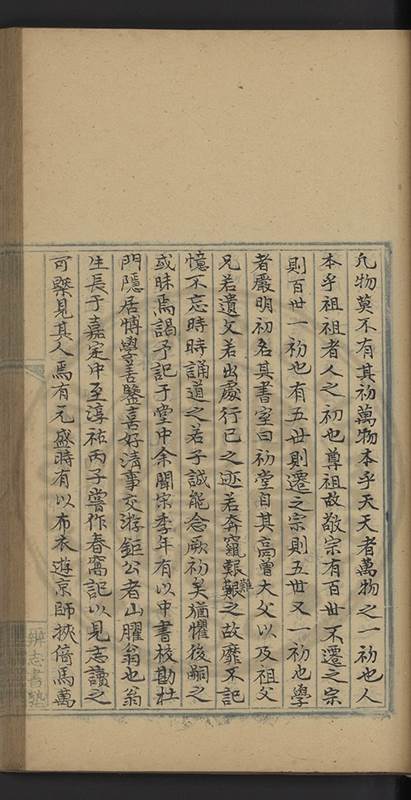 凢物莫不有其初萬物本乎天天者萬物之一初也人
本乎祖祖者人之初也尊祖故敬宗有百世不遷之宗
則百世一初也有五世則遷之宗則五世又一初也學
者嚴明初名其書室曰初堂自其高曾大父以及祖父
兄若遺文若出處行已之迹若奔竄艱難之故靡不記
憶不忘時時誦道之若子誠能念厥初矣猶懼後嗣之
或昧焉謁予記于堂中余聞宋季年有以中書校勘杜
門隱居博學善鑒喜好清事交游鉅公者山臞翁也翁
生長于嘉定中至淳祐丙子嘗作春窩記以見志讀之
可槩見其人焉有元盛時有以布衣遊京師挾倚馬萬
辨志書塾